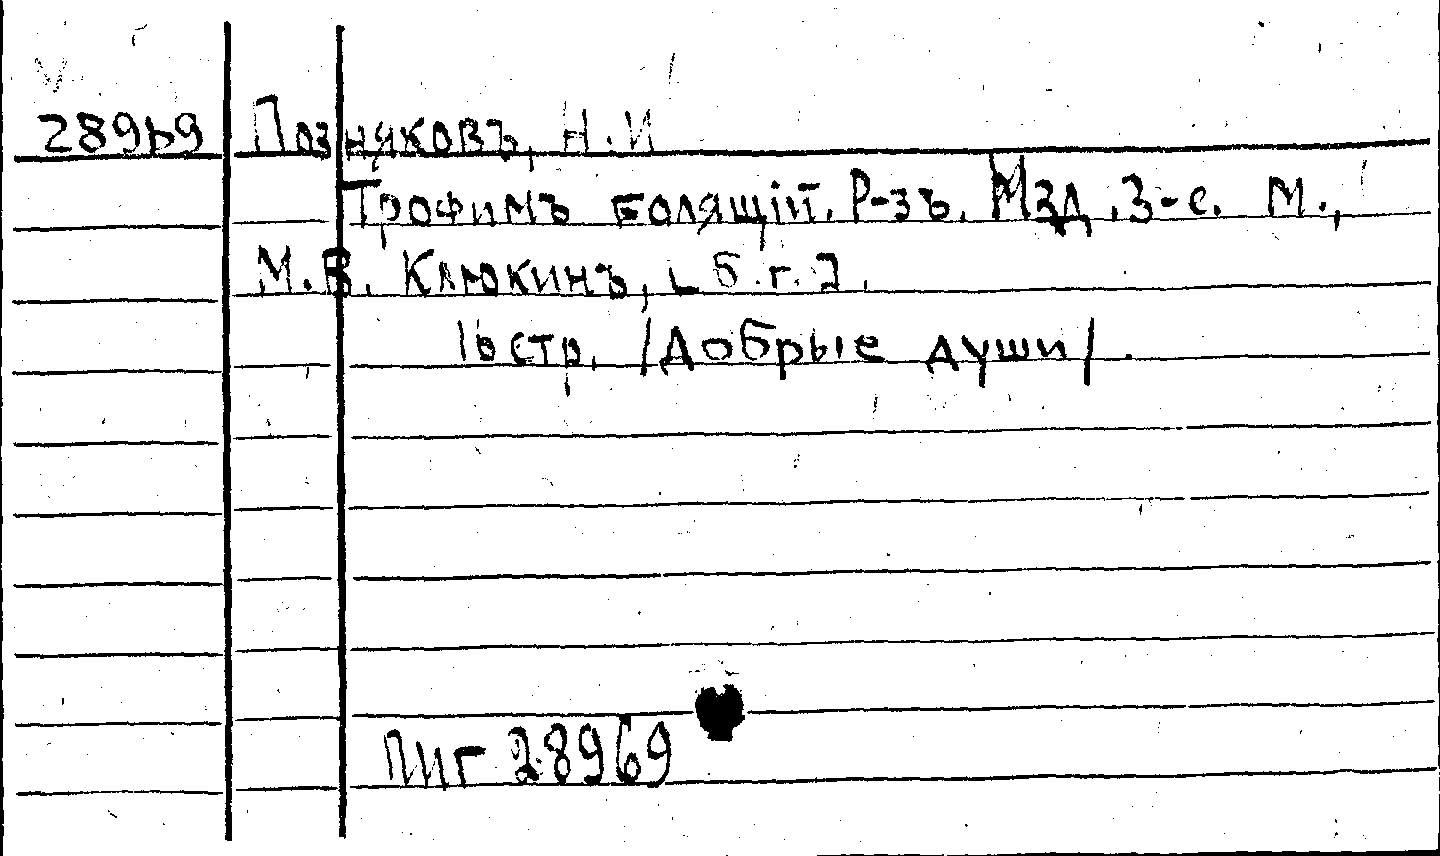 28969 Позняковъ, Н.И
Трофимъ болящій. Р-зъ. Изд. 3-е. М.,
М.В. Клюкинъ, [б.г.].
16 стр. /Добрые души/.
ПИГ 28969